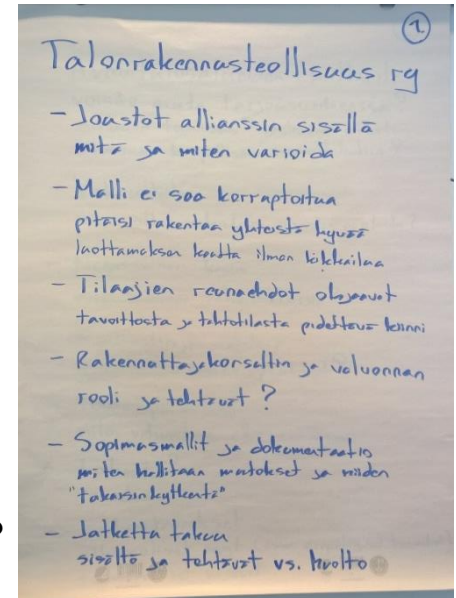 2
Talonrakennusteollisuus ry
- Joustot allianssin sisällä
mitä ja miten varioida
- Malli ei saa korruptoitua
pitäisi rakentaa yhteistä hyvää
luottamuksen kautta ilman
- Tilaajien reunaehdot ohjaavat
tavoitteista ja tahtotilasta pidettävä kiinni
- Rakennuttajakonsultin ja valvonnan
rooli ja tehtävät ?
- Sopimusmallit ja dokumentaatio
miten hallitaan muutokset ja niiden
"takaisinkytkentä"
- Jatkettu takuu
sisältö ja tehtävät vs. huolto